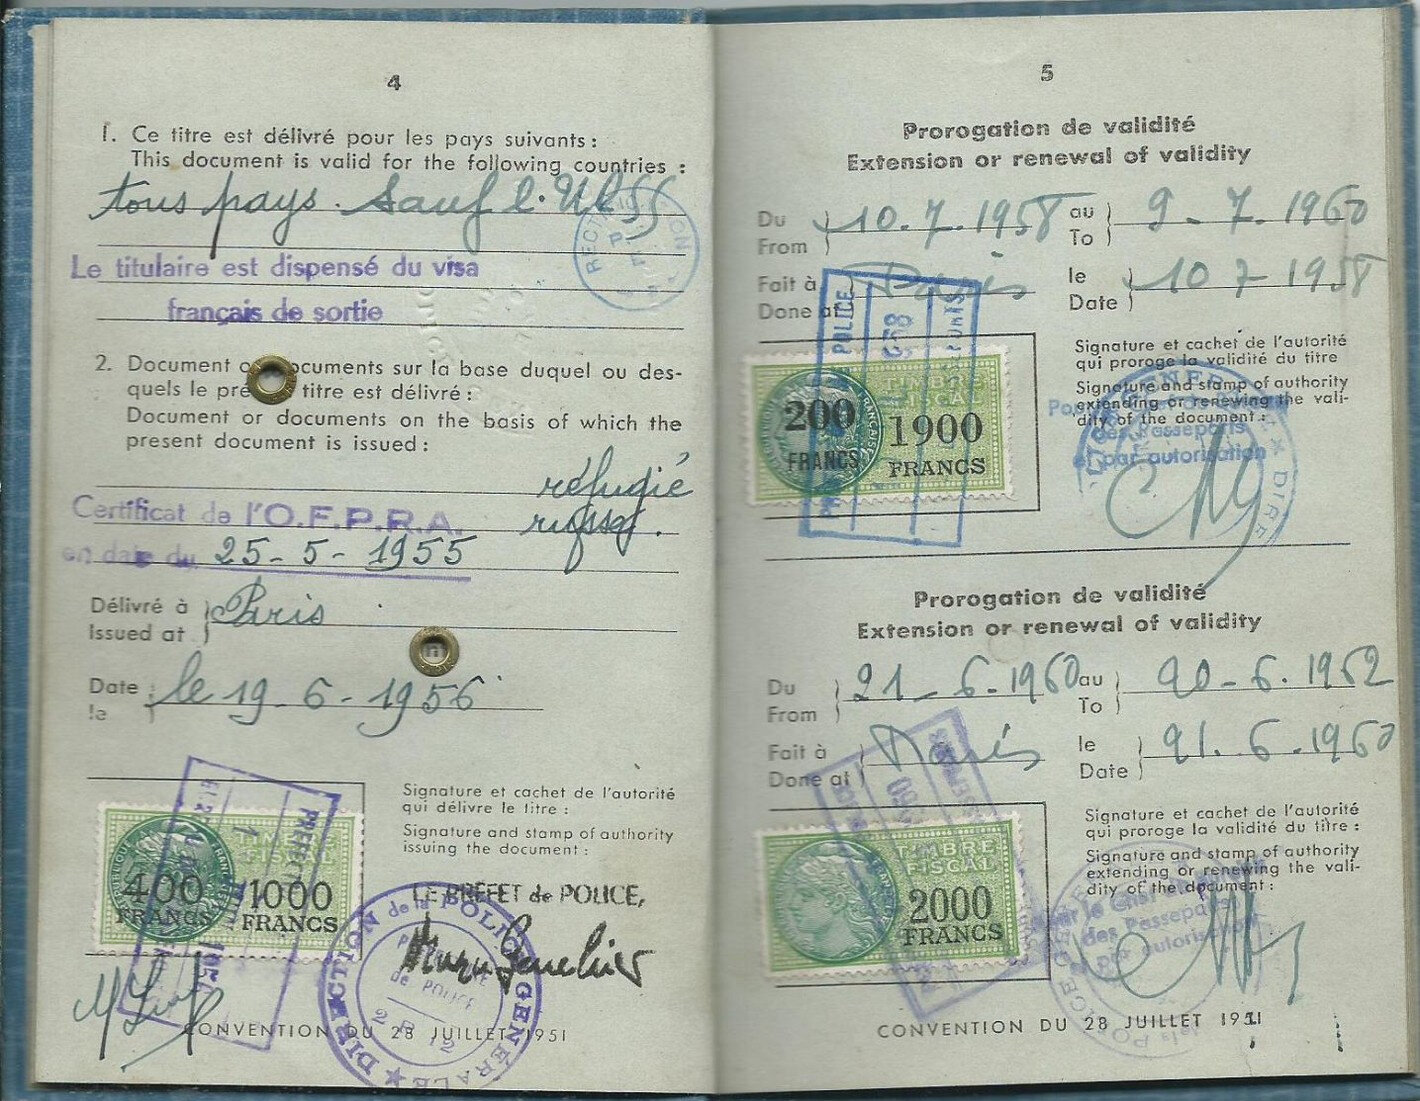 4
1. Ce titre est délivré pour les pays suivants :
This document is valid for the following countries :
tous pays. Sauf l'URSS
Le titulaire est dispensé du visa
français de sortie
2. Document ou documents sur la base duquel ou des-
quels le présent titre est délivré :
Document or documents on the basis of which the
present document is issued :
réfugié
russe.
Certificat de l'O.F.P.R.A.
en date du 25-5-1955
Délivré à Paris
Issued at
Date le 19-6-1956
le
Signature et cachet de l'autorité
qui délivre le titre :
Signature and stamp of authority
issuing the document :
TIMBRE
FISCAL
400 1000
FRANCS FRANCS
LE PRÉFET de POLICE,
DIRECTION de la POLICE GÉNÉRALE
de POLICE
CONVENTION DU 28 JUILLET 1951
5
Prorogation de validité
Extension or renewal of validity
Du 10.7.1958 au 9-7.1960
From To
Fait à Paris le 10 7 1958
Done at Date
POLICE
TIMBRE
FISCAL
200 1900
FRANCS FRANCS
Signature et cachet de l'autorité
qui proroge la validité du titre
Signature and stamp of authority
extending or renewing the vali-
dity of the document :
des Passeports
et par autorisation
Prorogation de validité
Extension or renewal of validity
Du 21-6-1960 au 20-6.1962
From To
Fait à Paris le 21.6.1960
Done at Date
TIMBRE
FISCAL
2000
FRANCS
Signature et cachet de l'autorité
qui proroge la validité du titre :
Signature and stamp of authority
extending or renewing the vali-
dity of the document :
des Passeports
par autorisation
CONVENTION DU 28 JUILLET 1951